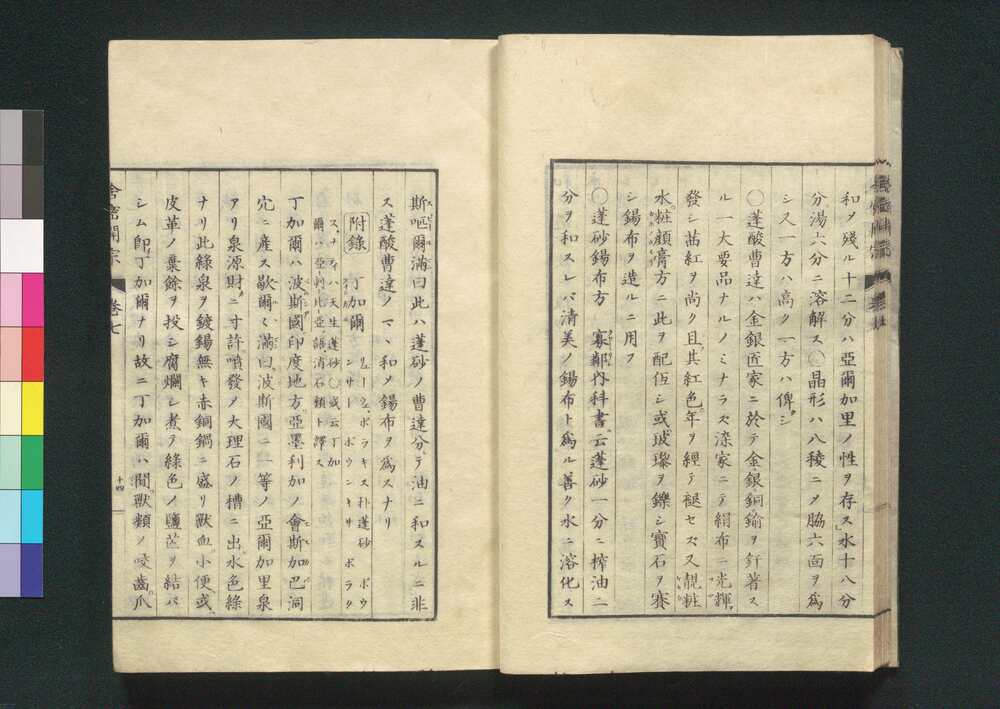 和ヲ殘ル十二分ハ亞爾加里ノ性ヲ存ス水十八分
分湯六分ニ溶解ス○晶形ハ八稜ニメ脇六面ヲ爲
シ又一方ハ高ク一方ハ俾シ
○蓬酸曹達ハ金銀匠家ニ於テ金銀銅鍮ヲ釬著ス
ル一大要品ナルノミナラス染家ニテ絹布ニ光輝ヲ
發シ茜紅ヲ尚ク且其紅色年ヲ經テ褪セス又靚粧
水粧顔膏方ニ此ヲ配伍シ或玻瓈ヲ鑠シ寶石ヲ賽
シ錫布ヲ造ルニ用フ
○蓬砂錫布方 寡鄰内科書云蓬砂一分ニ搾油二
分ヲ和スレバ清美ノ錫布ト爲ル善ク水ニ溶化ス
斯嘔爾滿曰此ハ蓬砂ノ曹達分テ油ニ和スルニ非
ス蓬酸曹達ノマヽ和メ錫布ヲ爲スナリ
附錄 丁加爾
リューシ、ボラキス朴蓬砂 ボウ
ンサー ボウンキサ ボラク
ス、ナティハ天生蓬砂○或云丁加
爾ハ亞剌比亞語消石類ト譯ス
丁加爾ハ波斯國印度地方亞墨利加ノ會斯加巴洞
穴ニ産ス歇爾滿曰波斯國ニ一等ノ亞爾加里泉
アリ泉源財ニ寸許噴發メ大理石ノ槽ニ出水色綠
ナリ此綠泉ヲ鍍錫無キ赤銅鍋ニ盛リ獸血小便或
皮革ノ棄餘ヲ投シ腐爛シ煮テ綠色ノ鹽ヲ結バ
シム卽丁加爾ナリ故ニ丁加爾ハ間獸類ノ咬齒爪
舍密開宗 卷七
十四